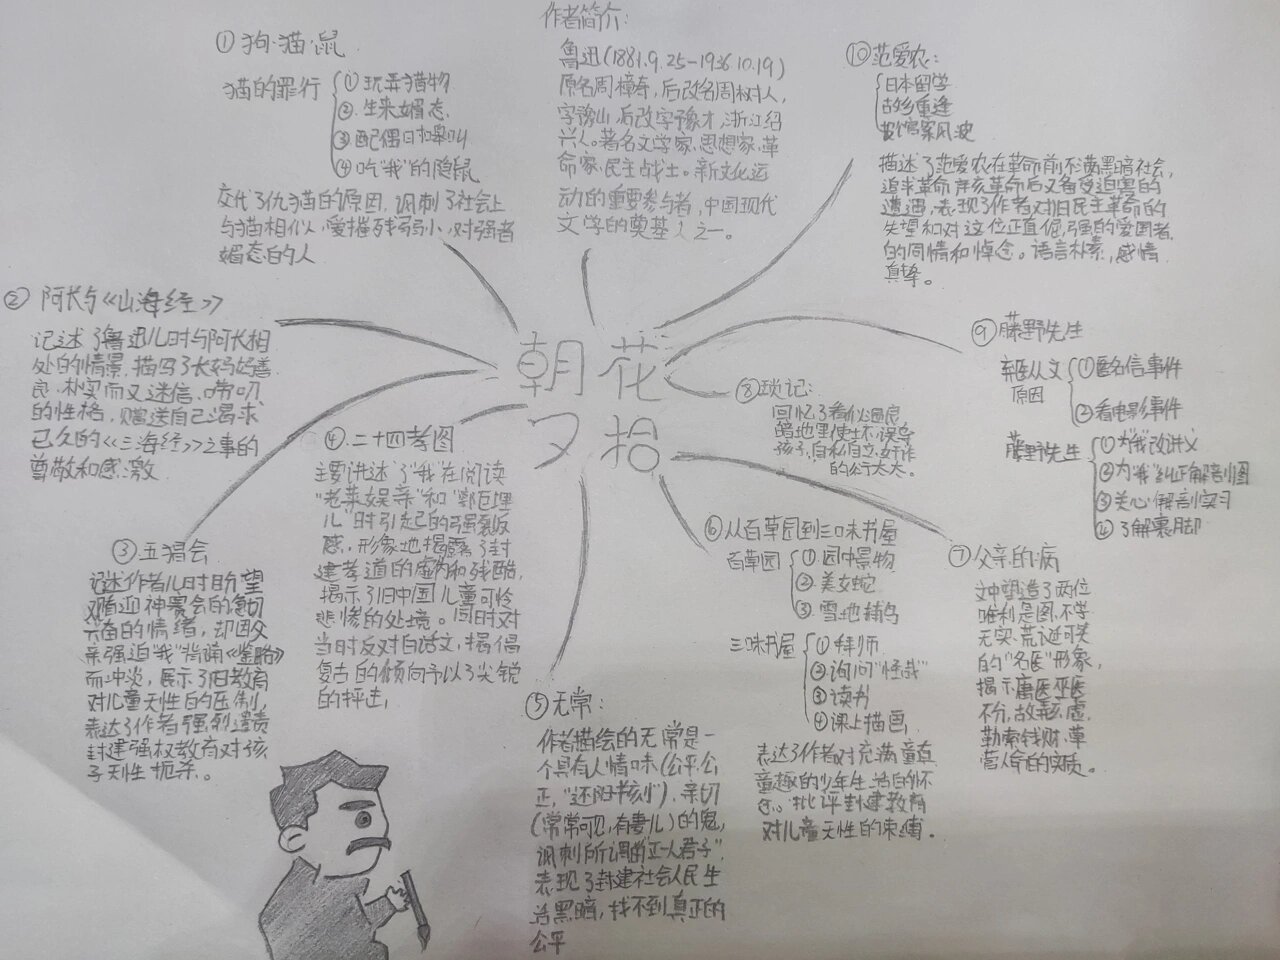 作者简介：
鲁迅(1881.9.25-1936.10.19)
原名周樟寿，后改名周树人，
字豫山，后改字豫才，浙江绍
兴人。著名文学家、思想家、革
命家、民主战士。新文化运
动的重要参与者，中国现代
文学的奠基人之一。
朝花
夕拾
①狗·猫·鼠
猫的罪行
①玩弄猎物
②生来媚态
③配偶日扣嗥叫
④吃"我"的隐鼠
交代了仇猫的原因，讽刺了社会上
与猫相似，爱摧残弱小，对强者
媚态的人
②阿长与《山海经》
记述了鲁迅儿时与阿长相
处的情景，描写了长妈妈善
良、朴实而又迷信、唠叨
的性格，赠送自己渴求
已久的《三海经》之事的
尊敬和感激
③五猖会
记述作者儿时盼望
观看迎神赛会的急切
兴奋的情绪，却因父
亲强迫"我"背诵《鉴略》
而冲淡，展示了旧教育
对儿童天性的压制，
表达了作者强烈谴责
封建强权教育对孩
子天性扼杀。
④二十四孝图
主要讲述了"我"在阅读
"老莱娱亲"和"郭巨埋
儿"时引起的强裂反
感，形象地揭露了封
建孝道的虚伪和残酷，
揭示了旧中国儿童可怜
悲惨的处境。同时对
当时反对白话文，提倡
复古的倾向予以了尖锐
的抨击，
⑤无常：
作者描绘的无常是一
个具有人情味(公平、公
正，"还阳半刻")，亲切
(常常可见，有妻儿)的鬼，
讽刺所谓的"正人君子"，
表现了封建社会人民生
活黑暗，找不到真正的
公平
⑥从百草园到三味书屋
百草园
①园中景物
②美女蛇
③雪地捕鸟
三味书屋
①拜师
②询问"怪哉"
③读书
④课上描画
表达了作者对充满童真
童趣的少年生活的怀
念。批评封建教育
对儿童天性的束缚。
⑦父亲的病
文中塑造了两位
唯利是图、不学
无实、荒诞可笑
的"名医"形象，
揭示庸医巫医
不分，故弄玄虚，
勒索钱财、草
菅人命的实质。
⑧琐记：
回忆了看似通良，
暗地里使坏，误导
孩子，自私自立、奸诈
的衍太太。
⑨藤野先生
弃医从文
原因
①匿名信事件
②看电影事件
藤野先生
①为"我"改讲义
②为"我"纠正解剖图
③关心解剖实习
④了解裹脚
⑩范爱农：
日本留学
故乡重逢
报馆案风波
描述了范爱农在革命前不满黑暗社会、
追求革命，辛亥革命后又备受迫害的
遭遇，表现了作者对旧民主革命的
失望和对这位正直倔强的爱国者
的同情和悼念。语言朴素，感情
真挚。